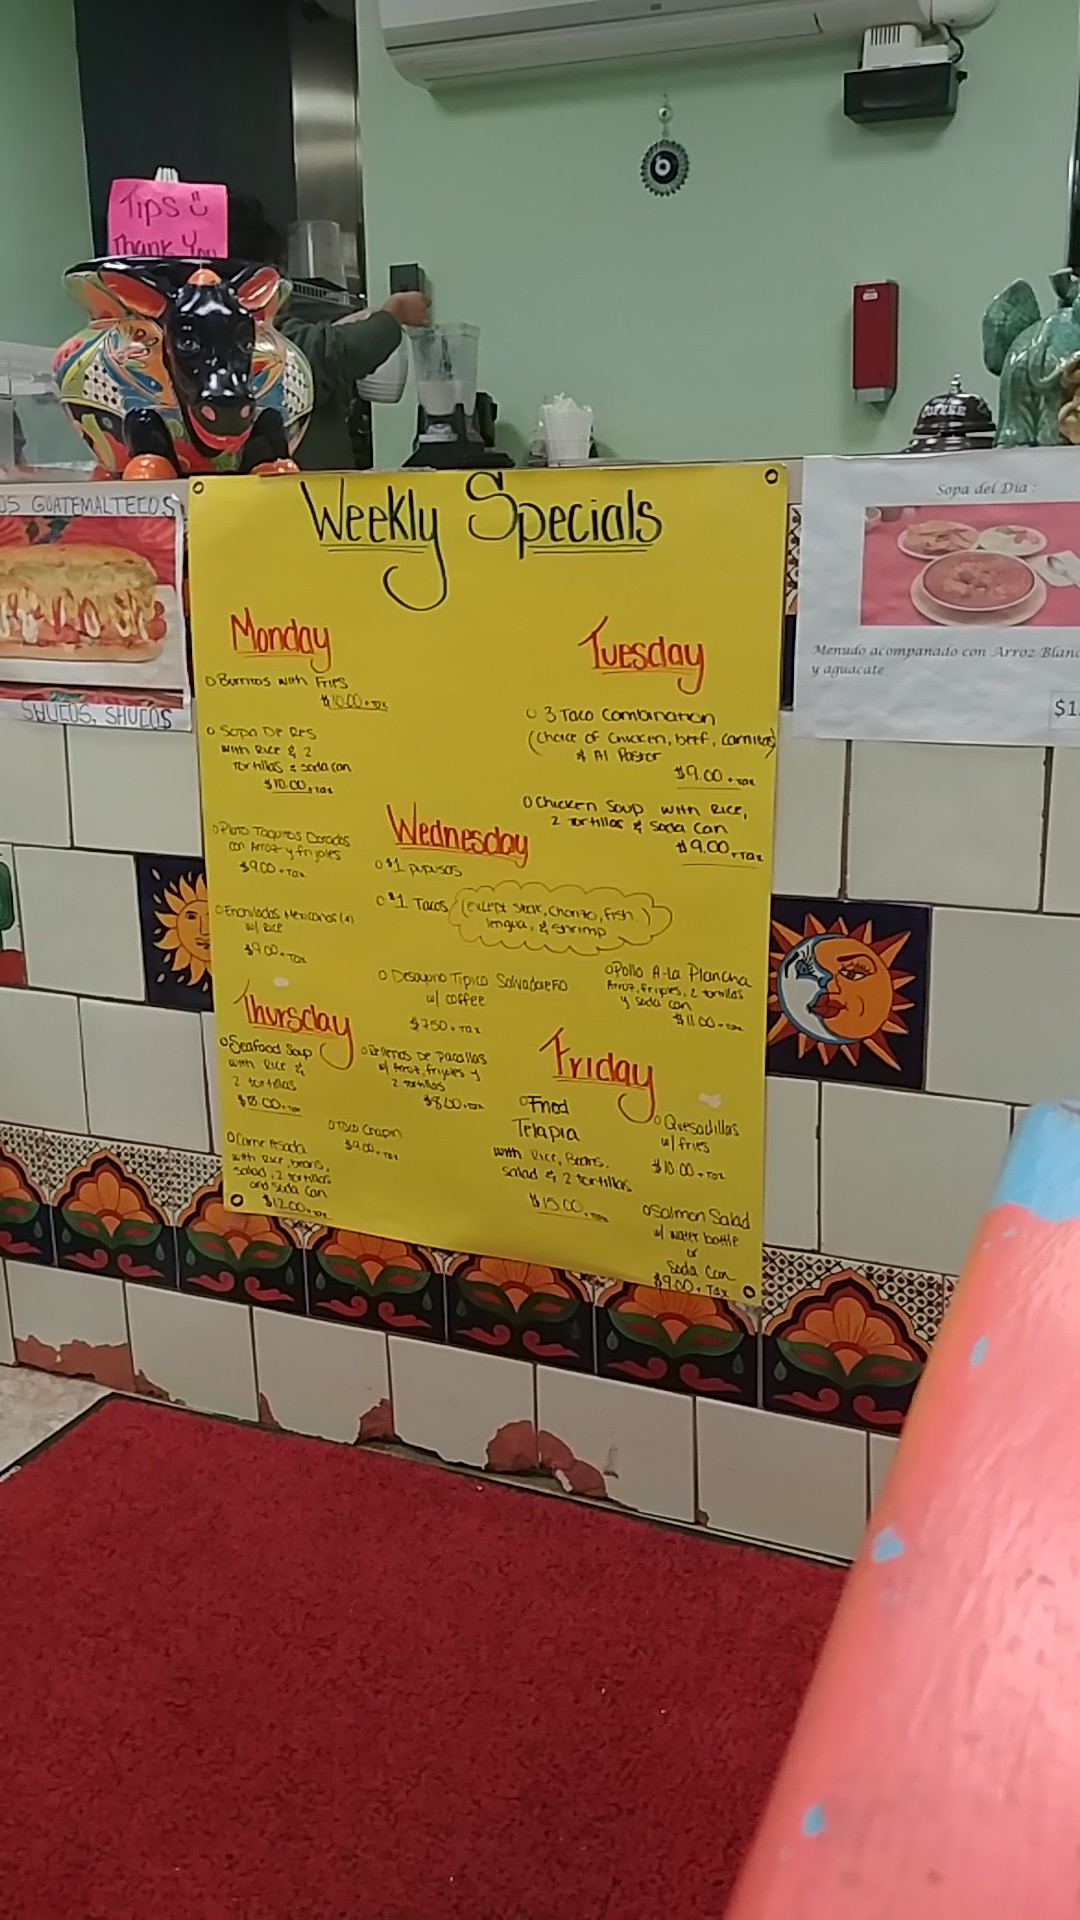 Tips
Thank You
OS GUATEMALTECOS
SHUCOS, SHUCOS
COFFEE
Sopa del Dia :
Menudo acompanado con Arroz Blanc
y aguacate
$1
Weekly Specials
Monday
Burritos with Fries
$10.00 + tax
Sopa De Res
with Rice & 2
tortillas & soda can
$10.00 + tax
Plato Taquitos Dorados
con Arroz y frijoles
$9.00 + Tax
Enchiladas Mexicanas (4)
w/ Rice
$9.00 + Tax
Tuesday
3 Taco Combination
(Choice of Chicken, beef, carnitas)
& Al Pastor
$9.00 + tax
Chicken Soup with Rice,
2 tortillas & Soda Can
$9.00 + Tax
Wednesday
$1 pupusas
$1 Tacos (except steak, chorizo, fish,)
lengua, & shrimp
Desayuno Tipico Salvadoreño
w/ coffee
$7.50 + Tax
Pollo A-la Plancha
Arroz, frijoles, 2 tortillas
y soda can
$11.00 + tax
Rellenos de Pacallas
w/ Arroz, frijoles y
2 tortillas
$8.00 + tax
Thursday
Seafood Soup
with Rice &
2 tortillas
Carne Asada
with Rice, beans,
Salad, 2 tortillas
and Soda Can
$12.00 + tax
Taco Chapin
$9.00 + Tax
Friday
Fried
Telapia
with Rice, Beans,
Salad & 2 tortillas
$15.00 + tax
Quesadillas
w/ fries
$10.00 + Tax
Salmon Salad
w/ water bottle
or
Soda Can
$9.00 + Tax